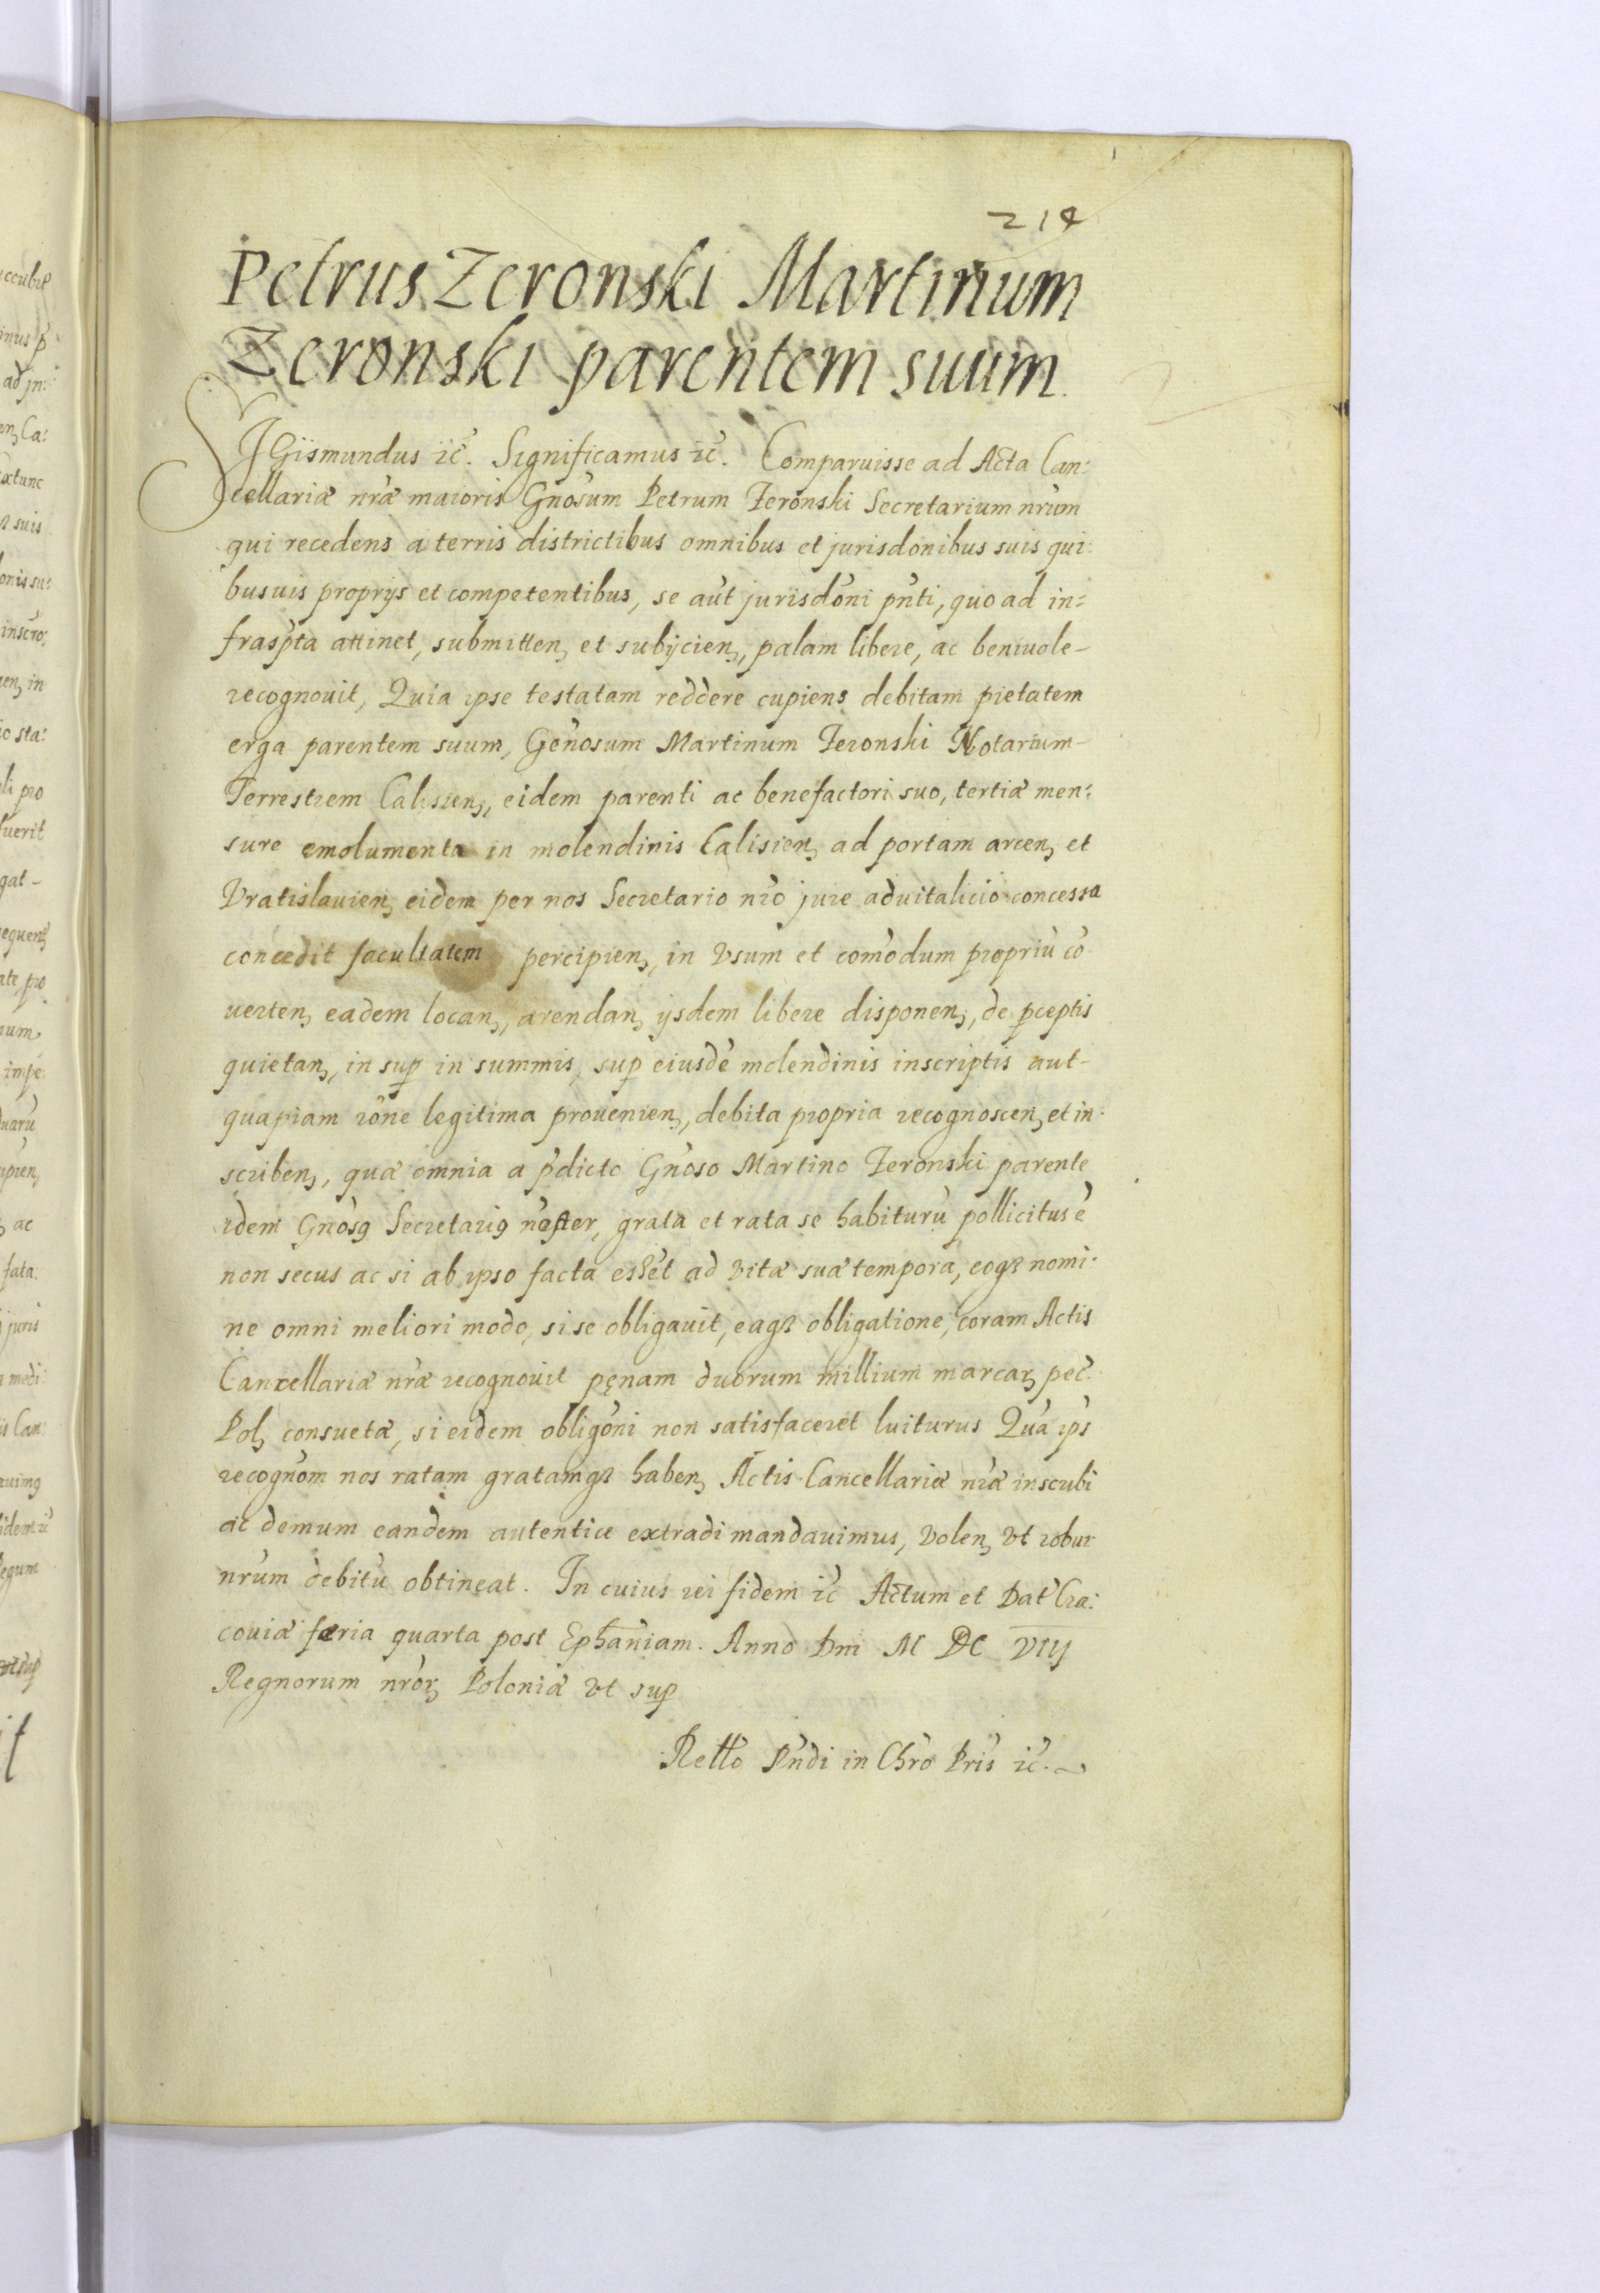 214
Petrus Zeronski Martinum
Zeronski parentem suum.
SIGismundus ꝛc̃. Significamus ꝛc̃. Comparuisse ad Acta Can:
cellariæ nr̃æ maioris Gnõsum Petrum Zeronski Secretarium nrũm
qui recedens a terris districtibus omnibus et jurisdõnibus suis qui:
busuis proprijs et competentibus, se aũt jurisdõni pñti, quo ad in:
frasp̃ta attinet, submitten̨ et subijcien̨, palam libere, ac beniuole-
recognouit, Quia ipse testatam reddere cupiens debitam pietatem
erga parentem suum, Geñosum Martinum Zeronski Notarium-
Terrestrem Calisien̨, eidem parenti ac benefactori suo, tertiæ men:
sure emolumenta in molendinis Calisien̨ ad portam arcen̨ et
Vratislauien̨ eidem per nos Secretario nr̃o jure aduitalicio concessa
concedit facultatem percipien̨, in Vsum et com̃odum propriũ cõ
uerten̨ eadem locan̨, arendan̨ ijsdem libere disponen̨, de ꝑceptis
quietan̨, in suꝑ in summis, suꝑ eiusdẽ molendinis inscriptis aut-
quapiam rõne legitima prouenien̨, debita propria recognoscen̨ et in:
scriben̨, quæ omnia a p̃dicto Gnõso Martino Zeronski parente
idem Gnõsꝯ Secretariꝯ noster, grata et rata se habiturũ pollicitus ẽ
non secus ac si ab ipso facta essẽt ad vitæ suæ tempora, eoqꝫ nomi:
ne omni meliori modo, si se obligauit, eaqꝫ obligatione, coram Actis
Cancellariæ nr̃æ recognouit pęnam duorum millium marcaꝝ pec̃.
Pol̨ consuetæ, si eidem obligõni non satisfaceret luiturus Quã ips̃
recognõm nos ratam gratamqꝫ haben̨ Actis Cancellariæ nr̃æ inscribi
ac demum eandem autentice extradi mandauimus, volen̨ vt robur
nrũm debitũ obtineat. In cuius rei fidem ꝛc̃ Actum et Dat̃ Cra:
couiæ feria quarta post Ephãniam. Anno Dni M DC VIIJ
Regnorum nrõꝝ Poloniæ vt suꝑ
Rellõ Rñdi in Chr̃o Pris̃ ꝛc̃.